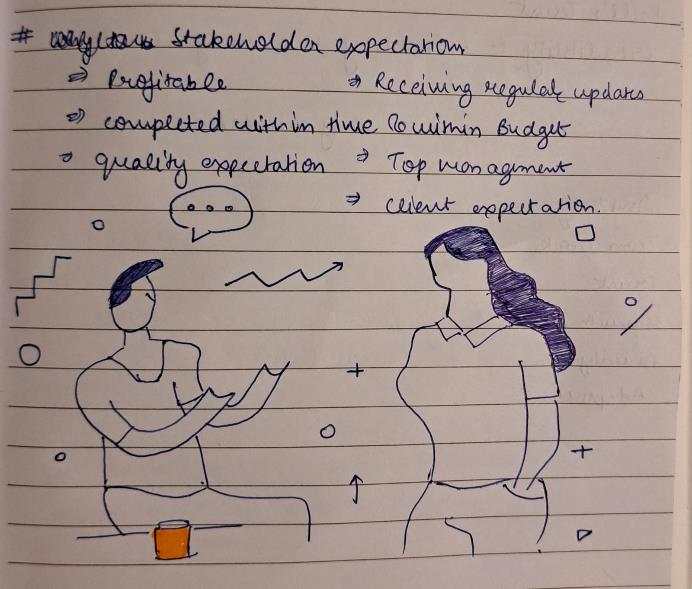 # Stakeholder expectation
⇒ Profitable ⇒ Receiving regular updates
⇒ completed within time & within Budget
⇒ quality expectation ⇒ Top managment
⇒ client expectation.